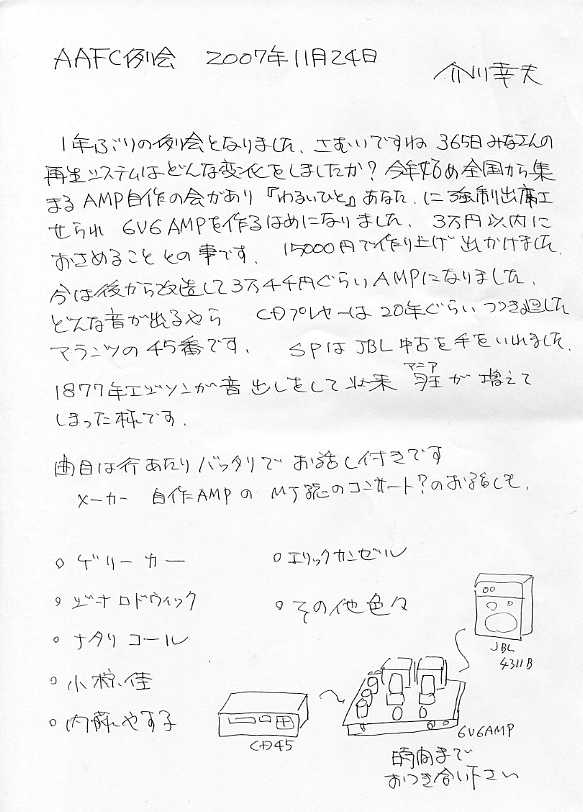 AAFC例会 2007年11月24日
介川幸夫
1年ぶりの例会となりました、さむいですね 365日みなさんの
再生システムはどんな変化をしましたか? 今年始め全国から集
まるAMP自作の会があり『わるいひと』あなた、に強制出席さ
せられ 6V6AMPを作るはめになりました、3万円以内に
おさめること との事です. 15000円で作り上げ出かけました.
今は後から改造して3万4千円ぐらいAMPになりました.
どんな音が出るやら CDプレヤーは20年ぐらいつき通した
マランツの45番です. SPはJBL中古を手をいれました.
1877年エジソンが音出しをして以来 マニア が増えて
しまった様です.
曲目は行あたりバッタリで お話し付きです
メーカー 自作AMPの MJ誌のコンサート?のお話しも.
○ ゲリーカー
○ エリックカンゼル
○ ジナロドウィック
○ その他色々
○ ナタリコール
○ 小椋佳
○ 内藤やす子
JBL
4311B
CD45
6V6AMP
時間まで
おつき合い下さい